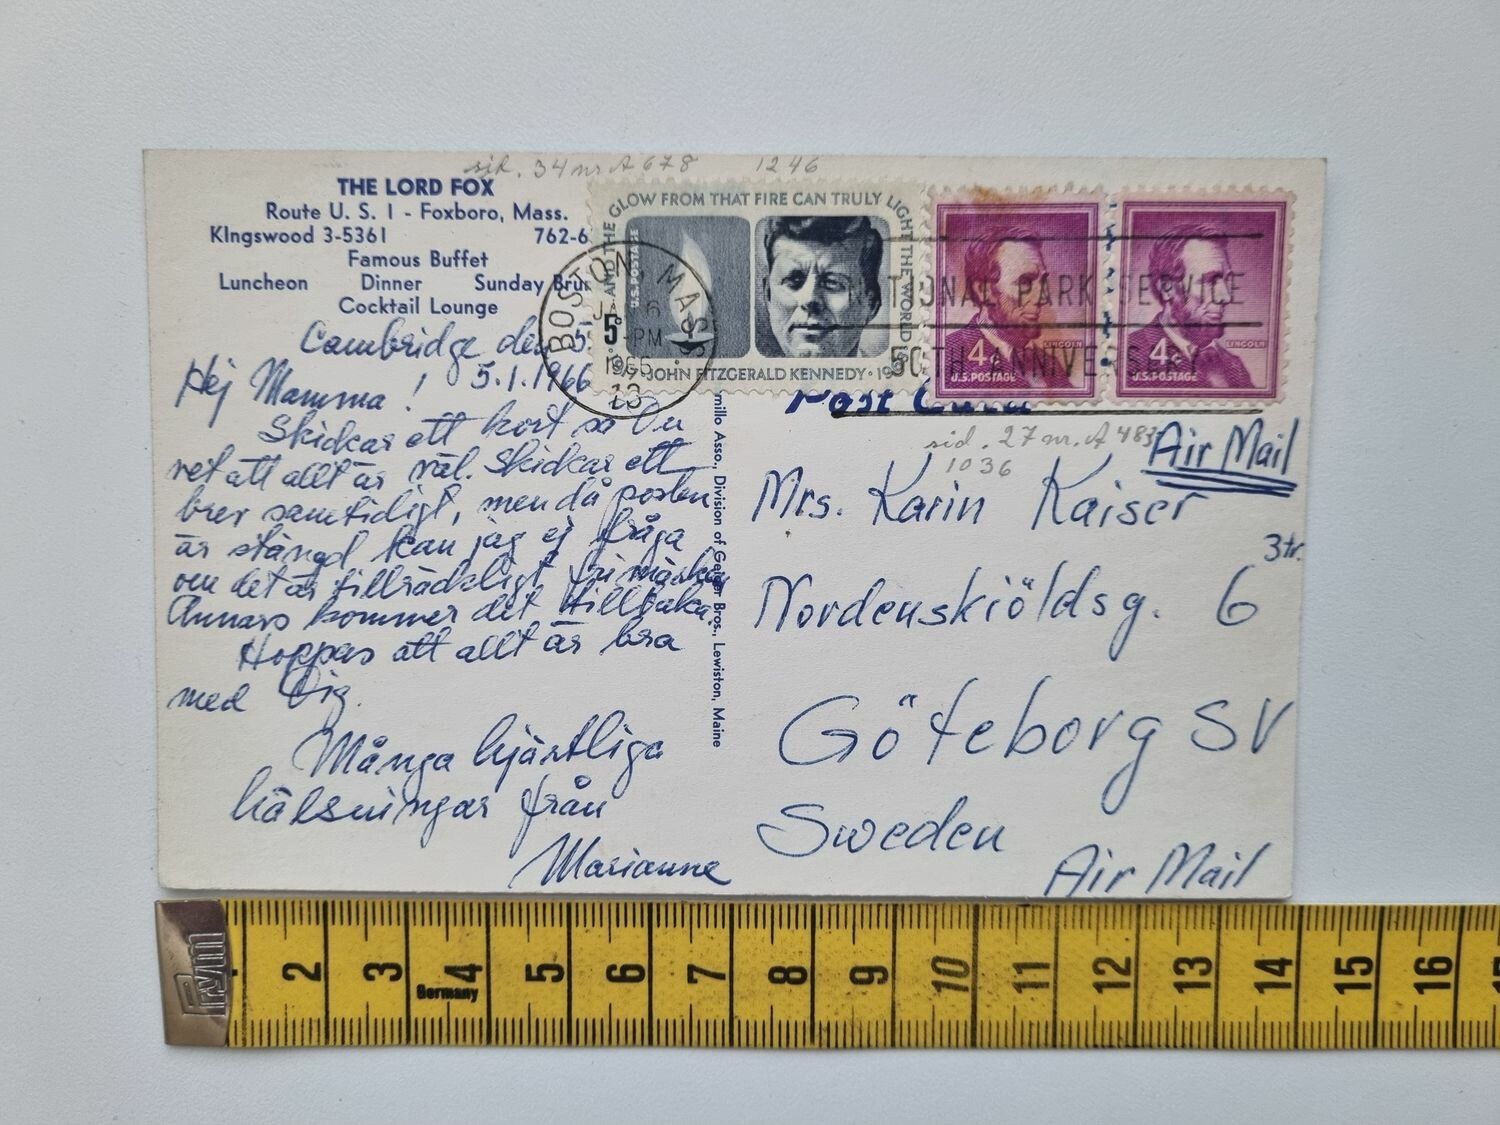 sid. 34 nr A 678 1246
THE LORD FOX
Route U. S. 1 - Foxboro, Mass.
KIngswood 3-5361 762-6
Famous Buffet
Luncheon Dinner Sunday Brun
Cocktail Lounge
Cambridge den 5
5.1.1966
Hej Mamma!
Skickar ett kort så Du
vet att allt är väl. Skickar ett
brev samtidigt, men då posten
är stängd kan jag ej fråga
om det är tillräckligt frimärken
Annars kommer det tillbaka.
Hoppas att allt är bra
med Dig.
Många hjärtliga
hälsningar från
Marianne
millo Asso., Division of Geiger Bros., Lewiston, Maine
AND THE GLOW FROM THAT FIRE CAN TRULY LIGHT THE WORLD
U.S. POSTAGE
5¢
JOHN FITZGERALD KENNEDY
BOSTON, MASS
JAN 6
PM
1966
NATIONAL PARK SERVICE
50TH ANNIVERSARY
4¢ LINCOLN
U.S. POSTAGE
4¢ LINCOLN
U.S. POSTAGE
Post Card
sid. 27 nr. A 483
1036
Air Mail
Mrs. Karin Kaiser
3 tr.
Nordenskiöldsg. 6
Göteborg SV
Sweden
Air Mail
Prym
2 3 4 5 6 7 8 9 10 11 12 13 14 15 16
Germany